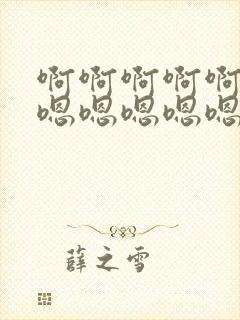 啊啊啊啊啊
嗯嗯嗯嗯嗯
薛之雪